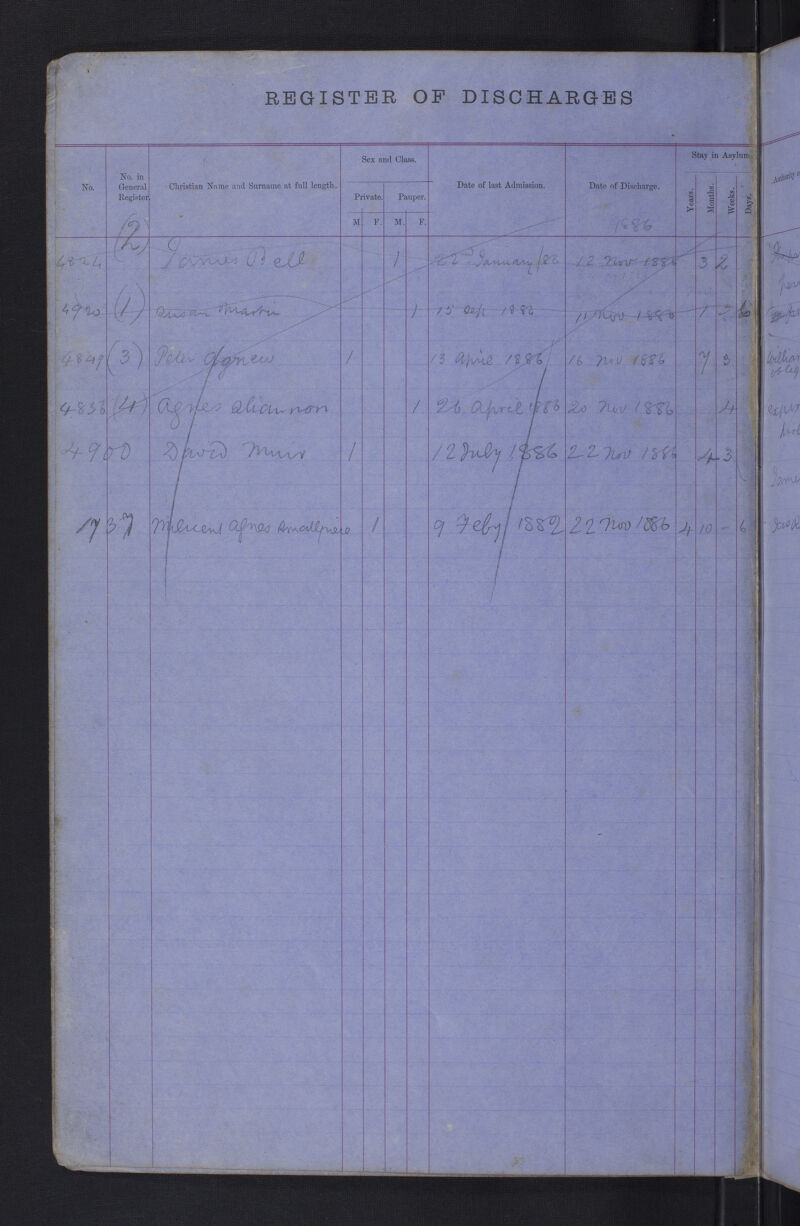 REGISTER OF DISCHARGES
No.
No. in General Register.
Christian Name and Surname at full length.
Sex and Class.
Private. Pauper.
M. F. M. F.
Date of last Admission.
Date of Discharge.
Stay in Asylum.
Years. Months. Weeks. Days.
1886
4824 (2) James Bell 1 22nd January/86 12 Nov 1886 3 2
4920 (1) Susan Martin 1 15 Sep 1886 11 Nov 1886 1
4849 (3) Peter Agnew 1 13 April 1886 16 Nov 1886 7 3
4836 (4) Agnes 1 26 April 1886 20 Nov 1886 4
4900 David Muir 1 12 July 1886 22 Nov 1886 4 3
1737 Milicent Agnes Smallpiece 1 9 Feby 1882 22 Nov 1886 4 10 - 6